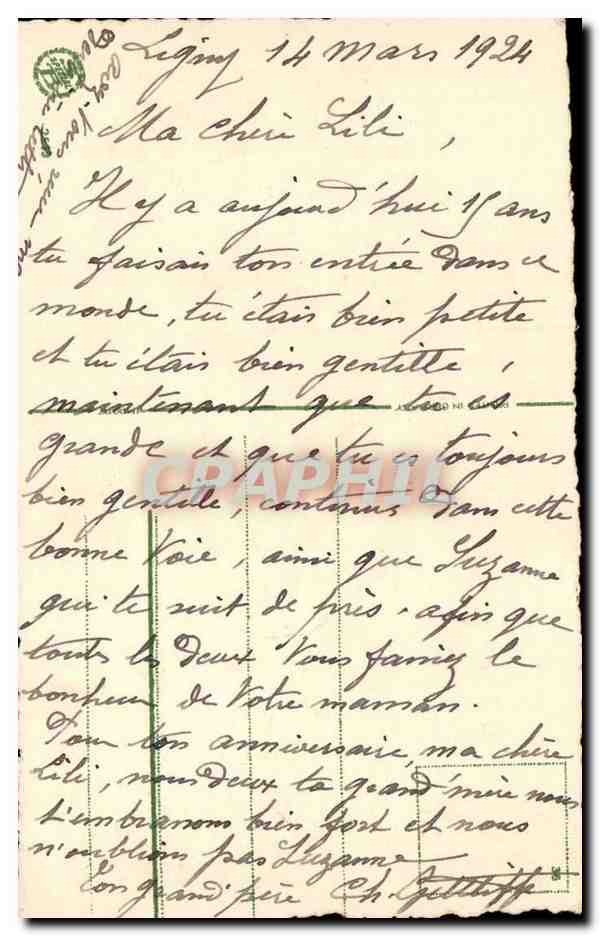 Ligny 14 mars 1924
Ma chère Lili,
Il y a aujourd'hui 15 ans
tu faisais ton entrée dans ce
monde, tu étais bien petite
et tu étais bien gentille,
maintenant que tu es
grande et que tu es toujours
bien gentille, continue dans cette
bonne voie, ainsi que Suzanne
qui te suit de près. afin que
toutes les deux vous fassiez le
bonheur de votre maman.
Pour ton anniversaire ma chère
Lili, nous deux ta grand'mère nous
t'embrassons bien fort et nous
n'oublions pas Suzanne
Ton grand'père Ch.
CPAPHIL